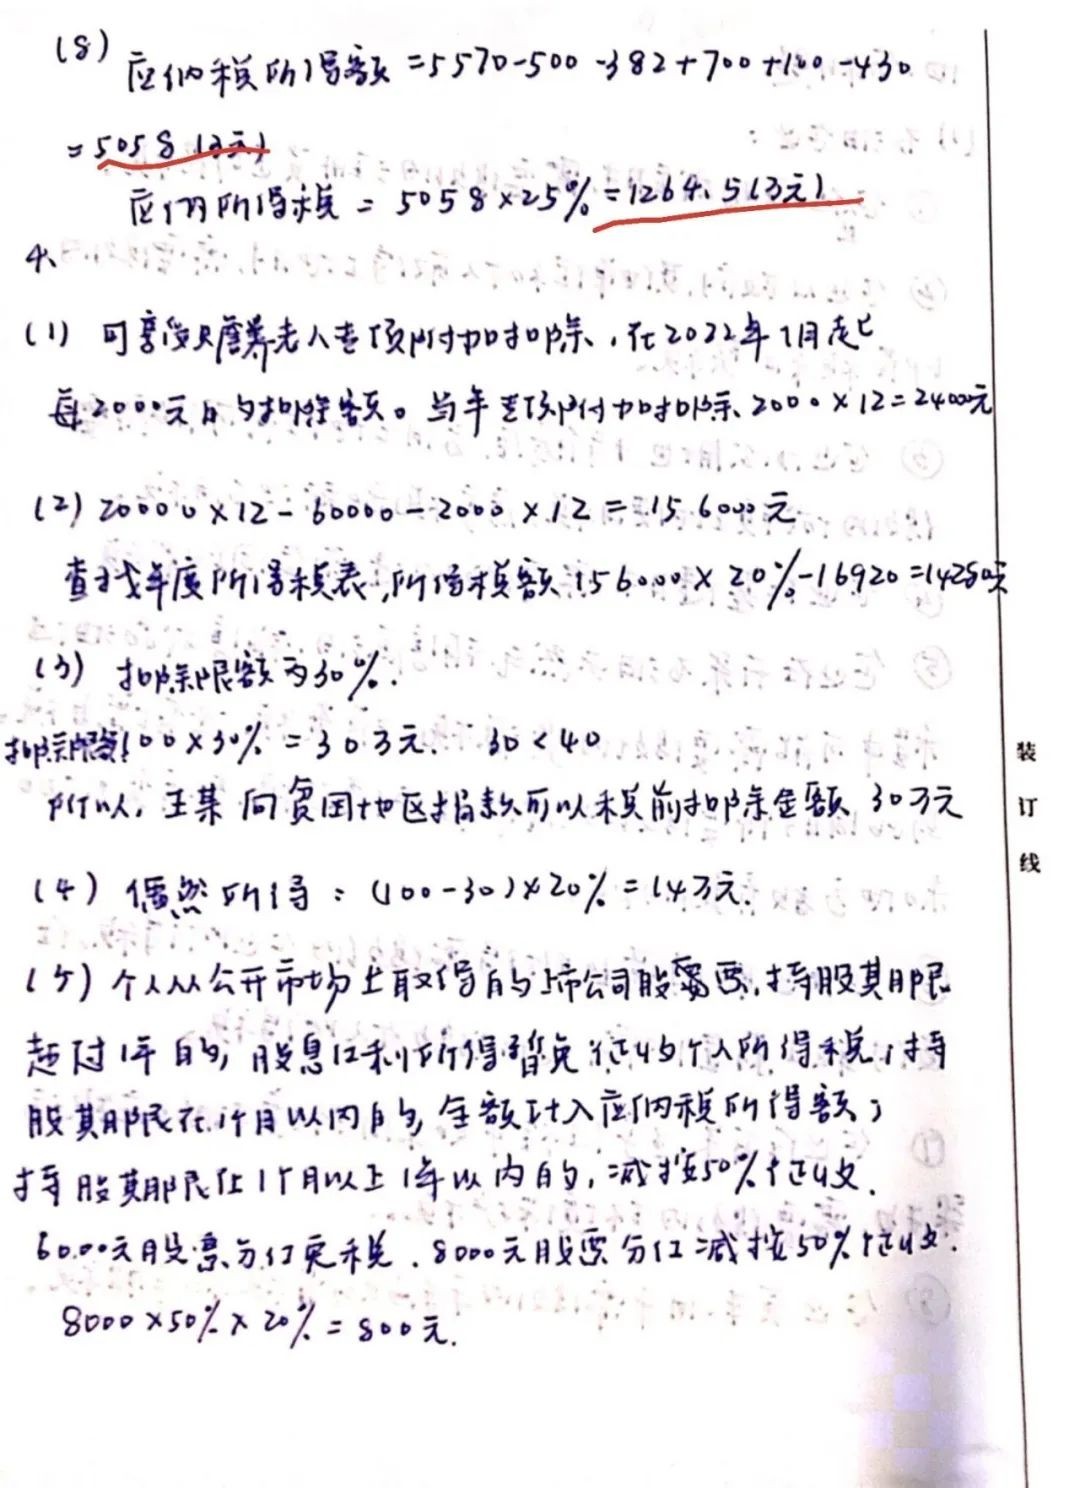 (8) 应纳税所得额 =5570-500-382+700+100-430
=5058(万元)
应纳所得税 = 5058×25%=1264.5(万元)
4、
(1) 可享受赡养老人专项附加扣除,在2022年1月起
每2000元的扣除额。当年专项附加扣除、2000×12=24000元
(2) 20000×12-60000-2000×12=156000元
查找年度所得税表,所得税额156000×20%-16920=14280元
(3) 扣除限额为30%.
扣除限额100×30%=30万元. 30<40
所以,王某向贫困地区捐款可以税前扣除金额30万元
(4) 偶然所得:(100-30)×20%=14万元.
(5) 个人从公开市场上取得的上市公司股票,持股期限
超过1年的,股息红利所得暂免征收个人所得税;持
股期限在1个月以内的,全额计入应纳税所得额;
持股期限在1个月以上1年以内的,减按50%征收.
6000元股票分红免税.8000元股票分红减按50%征收.
8000×50%×20%=800元.
装
订
线